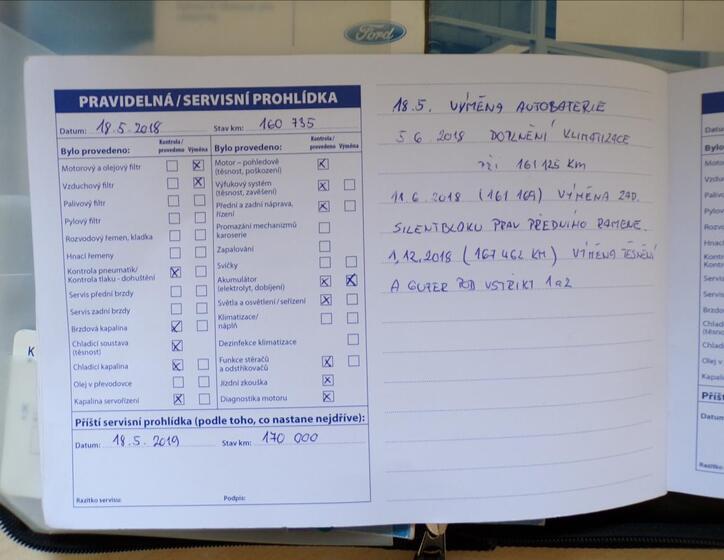 Ford
PRAVIDELNÁ / SERVISNÍ PROHLÍDKA
Datum: 18.5.2018 Stav km: 160 735
Bylo provedeno: Kontrola / provedeno Výměna
Motorový a olejový filtr
Vzduchový filtr
Palivový filtr
Pylový filtr
Rozvodový řemen, kladka
Hnací řemeny
Kontrola pneumatik/
Kontrola tlaku - dohuštění
Servis přední brzdy
Servis zadní brzdy
Brzdová kapalina
Chladicí soustava
(těsnost)
Chladicí kapalina
Olej v převodovce
Kapalina servořízení
Bylo provedeno: Kontrola / provedeno Výměna
Motor – pohledově
(těsnost, poškození)
Výfukový systém
(těsnost, zavěšení)
Přední a zadní náprava,
řízení
Promazání mechanizmů
karoserie
Zapalování
Svíčky
Akumulátor
(elektrolyt, dobíjení)
Světla a osvětlení / seřízení
Klimatizace/
náplň
Dezinfekce klimatizace
Funkce stěračů
a odstřikovačů
Jízdní zkouška
Diagnostika motoru
Příští servisní prohlídka (podle toho, co nastane nejdříve):
Datum: 18.5.2019 Stav km: 170 000
Razítko servisu: Podpis:
18.5. VÝMĚNA AUTOBATERIE
5.6 2018 DOPLNĚNÍ KLIMATIZACE
PŘI 161 125 KM
11.6.2018 (161 169) VÝMĚNA ZAD.
SILENTBLOKU PRAV PŘEDNÍHO RAMENE.
1.12.2018 (167 462 KM) VÝMĚNA TĚSNĚNÍ
A GUFER POD VSTŘIKY 1 a 2
K